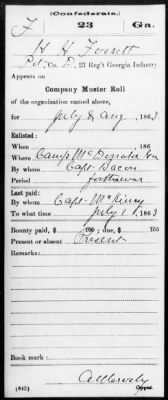 (Confederate.)
F 23 Ga.
H H Fossett
Pvt, Co. D, 23 Reg't Georgia Infantry.
Appears on
Company Muster Roll
of the organization named above,
for July & Aug, 1863
Enlisted:
When 186
Where Camp McDonald Ga
By whom Capt. Bacon
Period for the war
Last paid:
By whom Capt. McKinny
To what time July 1, 1863
Bounty paid, $ 100; due, $ 100
Present or absent Present
Remarks:
Book mark:
(642) Copyist.